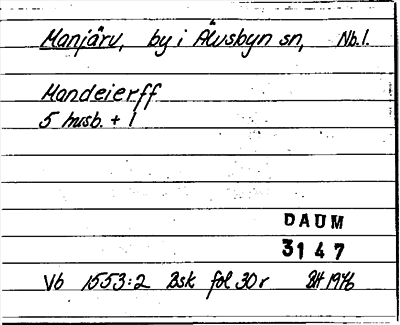 Manjärv, by i Älvsbyn sn, Nb.l.
Mandeierff
5 husb. + 1
DAUM
3147
Vb 1553:2 Bsk fol 30 r BH 1976